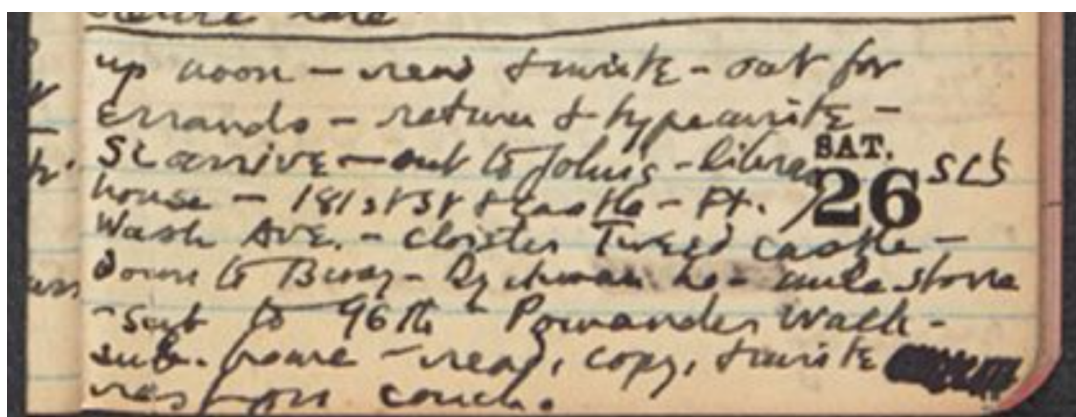 up noon – read & write – out for
errands – return & typewrite –
SL arrive – out to John's – library SAT. SL's
house – 181st St & castle – Ft. 26
Wash Ave. – cloister Tweed castle –
down to Bway – Dyckman ho – mile stone
– sub to 96th Pomander Walk –
sub. home – read, copy, & write
rest on couch.